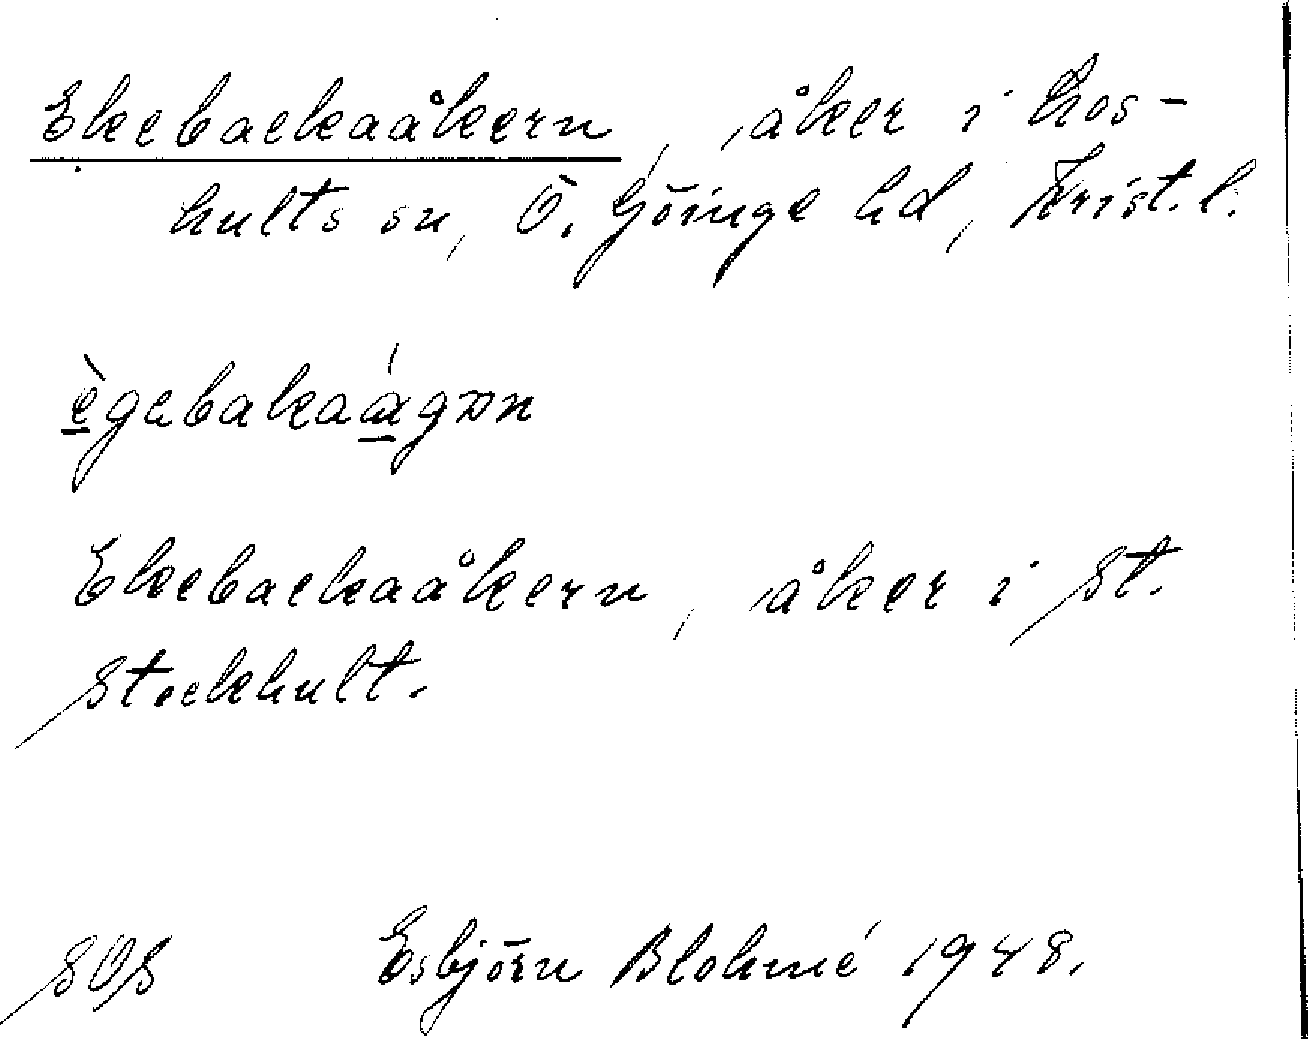 Ekebackaåkern, åker i Los-
hults sn, Ö. Göinge hd, Krist. l.
ègebakaágɒn
Ekebackaåkern, åker i St.
Stockhult.
SOS Esbjörn Blohmé 1948.